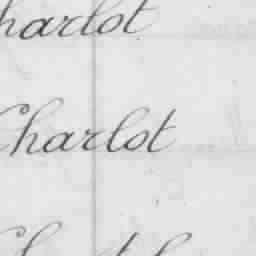 Charlot
Charlot